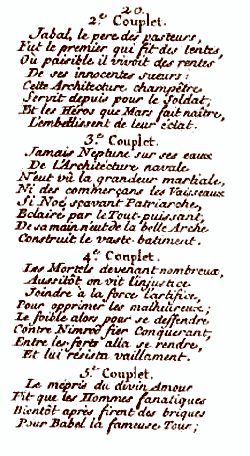 20.
2.e Couplet.
Jabal, le pere des pasteurs,
Fut le premier qui fit des tentes,
Où paisible il vivoit des rentes
De ses innocentes sueurs:
Cette Architecture champêtre
Servit depuis pour le Soldat,
Et les Héros que Mars fait naître,
L'embellissent de leur éclat.
3.e Couplet.
Jamais Neptune sur ses eaux
De l'Architecture navale
N'eut vû la grandeur martiale,
Ni des commerçans les Vaisseaux
Si Noé sçavant Patriarche,
Eclairé par le Tout-puissant,
De sa main n'eut de la belle Arche
Construit le vaste batiment.
4.e Couplet.
Les Mortels devenant nombreux,
Aussitôt on vit l'injustice
Joindre à la force l'artifice,
Pour opprimer les malheureux;
Le foible alors pour se deffendre
Contre Nimrod fier Conquerant,
Entre les forts alla se rendre,
Et lui résista vaillament.
5.e Couplet.
Le mépris du divin Amour
Fit que les Hommes fanatiques
Bientôt après firent des briques
Pour Babel la fameuse Tour;